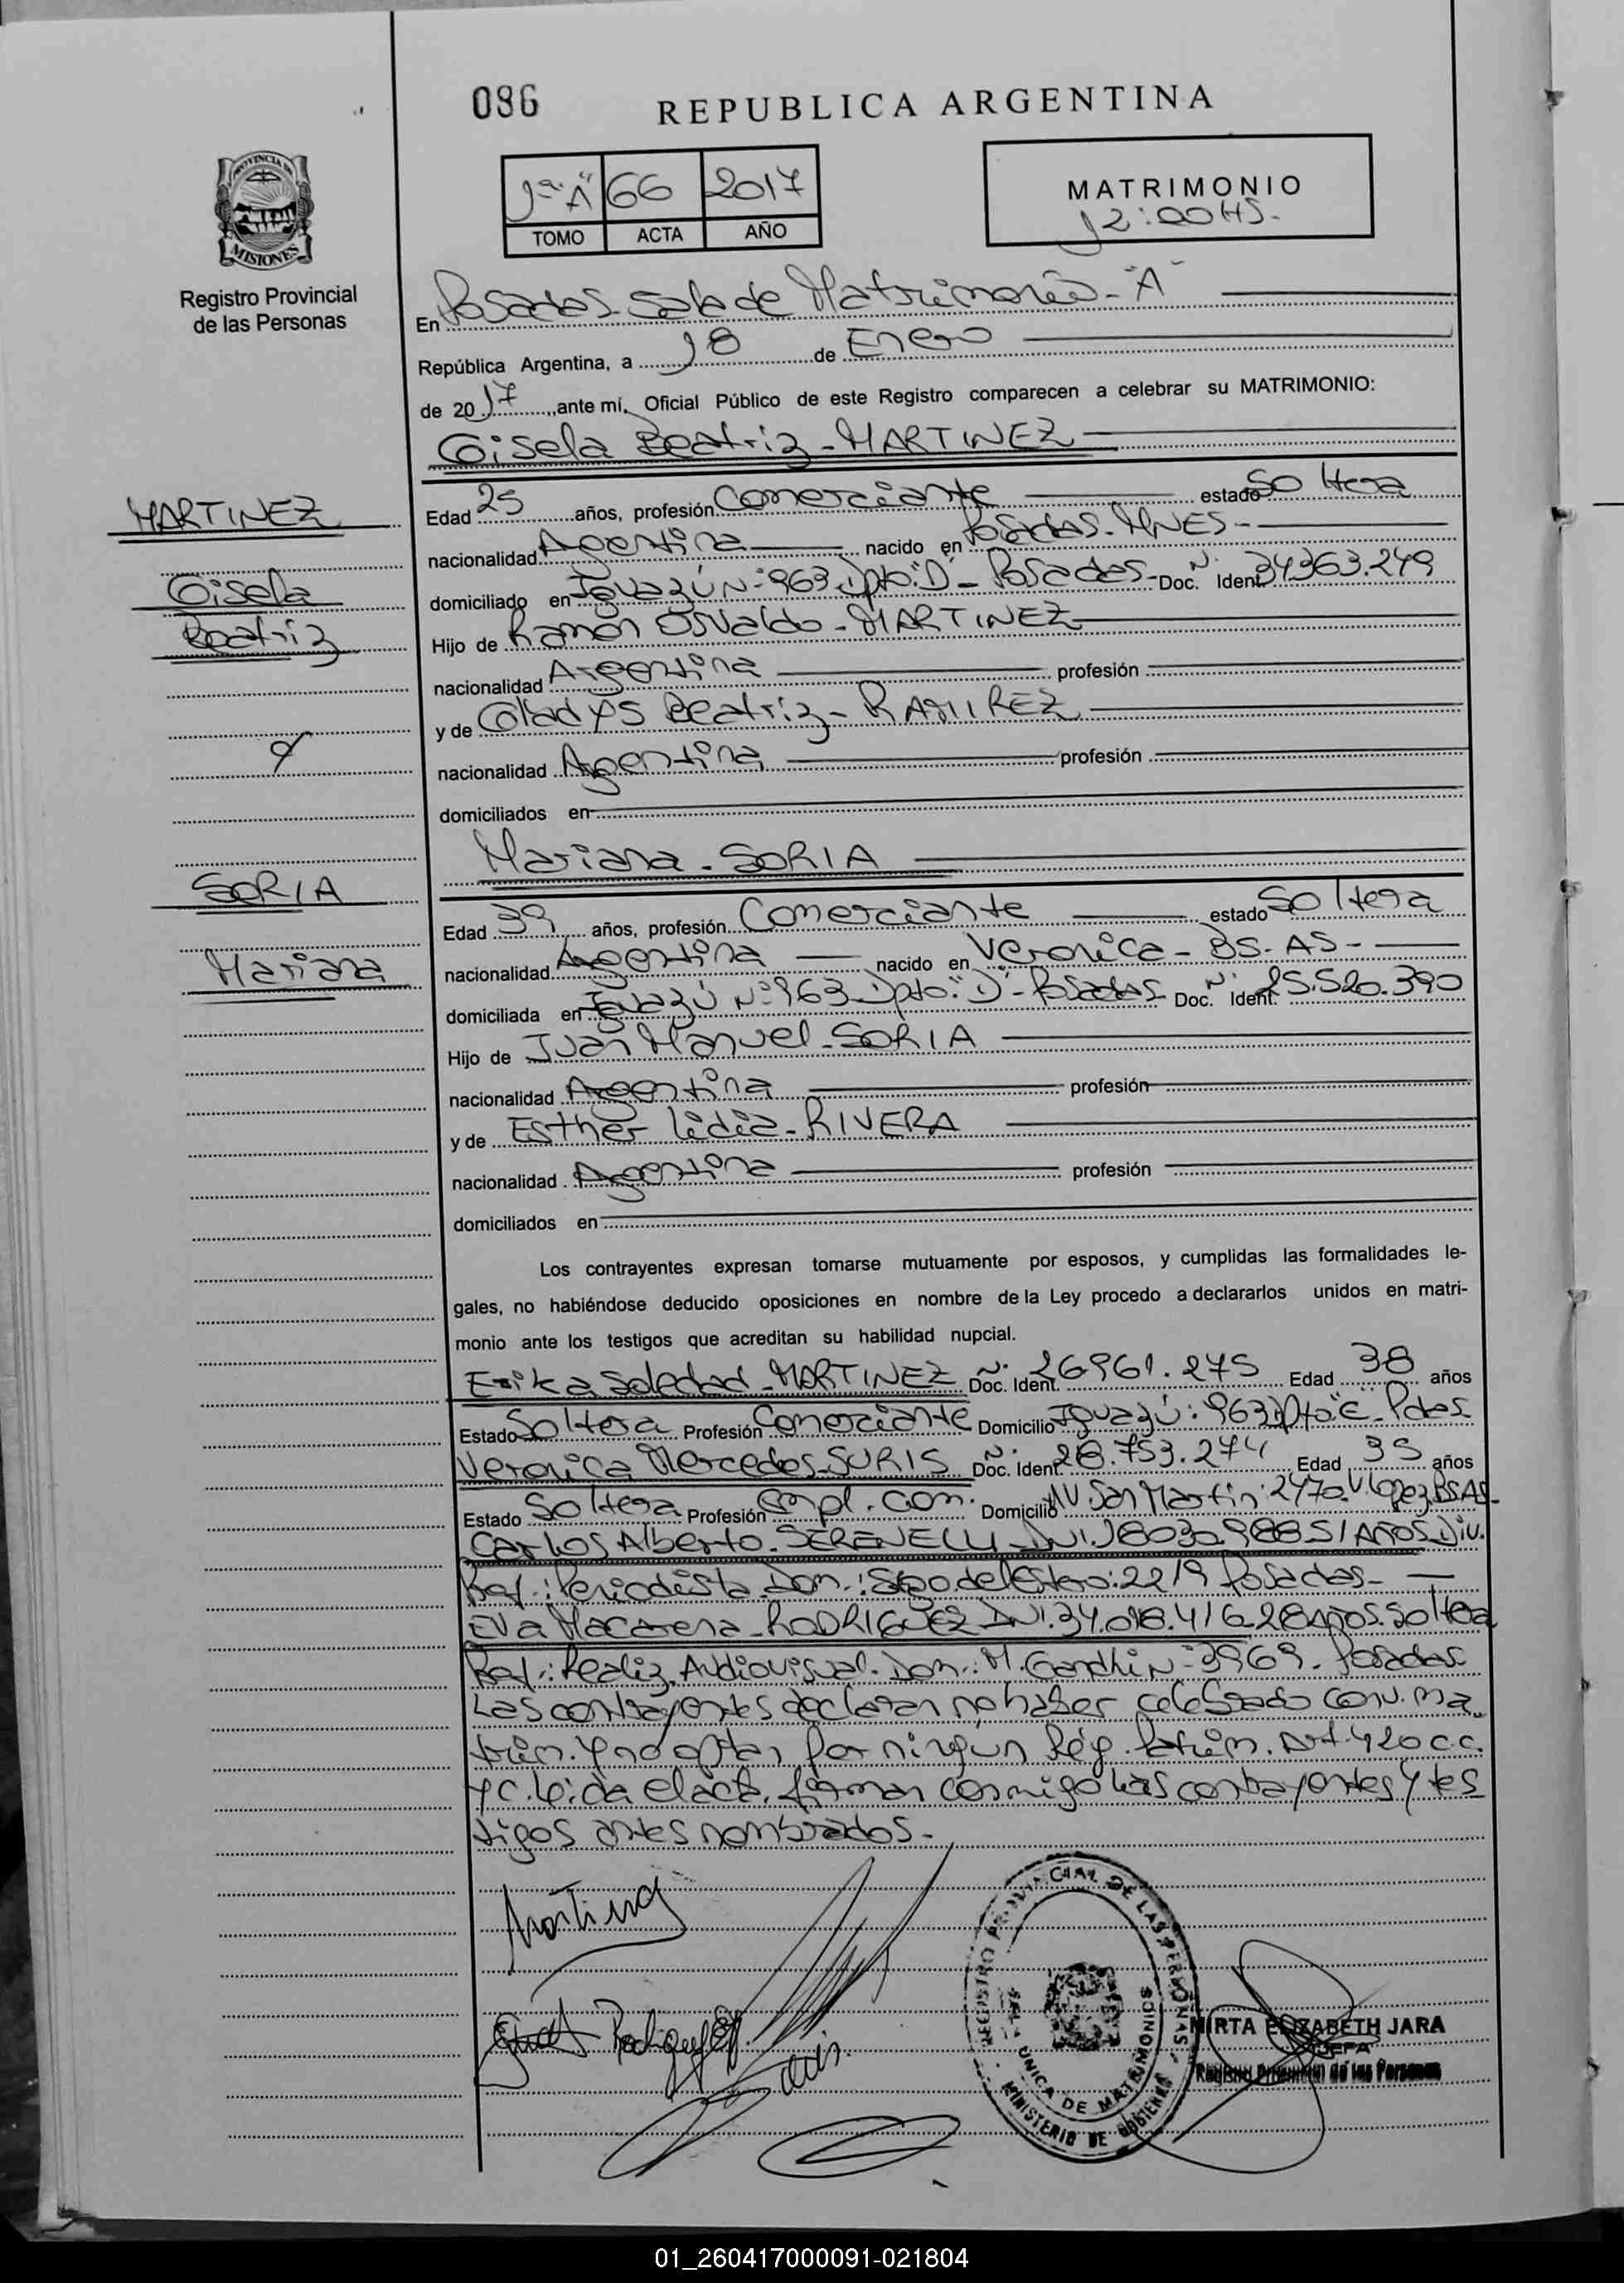 096
REPUBLICA ARGENTINA
1ª "A" 66 2017
TOMO ACTA AÑO
MATRIMONIO
12:00 HS.-
PROVINCIA DE
MISIONES
Registro Provincial
de las Personas
En Posadas-Sala de Matrimonios-"A"
República Argentina, a 18 de Enero
de 2017, ante mí, Oficial Público de este Registro comparecen a celebrar su MATRIMONIO:
Gisela Beatriz-MARTINEZ
MARTINEZ
Gisela
Beatriz
Edad 25 años, profesión Comerciante estado Soltera
nacionalidad Argentina nacido en Posadas-MNES-
domiciliado en Iguazú Nº:963 Dpto:"D"-Posadas- Doc. Ident. Nº: 34363.249
Hijo de Ramón Osvaldo-MARTINEZ
nacionalidad Argentina profesión
y de Gladys Beatriz-RAMIREZ
nacionalidad Argentina profesión
domiciliados en
y
Mariana-SORIA
SORIA
Mariana
Edad 39 años, profesión Comerciante estado Soltera
nacionalidad Argentina nacido en Veronica-BS-AS-
domiciliada en Iguazú Nº:963 Dpto:"D"-Posadas Doc. Ident. Nº: 25.520.390
Hijo de Juan Manuel-SORIA
nacionalidad Argentina profesión
y de Esther Lidia-RIVERA
nacionalidad Argentina profesión
domiciliados en
Los contrayentes expresan tomarse mutuamente por esposos, y cumplidas las formalidades le-
gales, no habiéndose deducido oposiciones en nombre de la Ley procedo a declararlos unidos en matri-
monio ante los testigos que acreditan su habilidad nupcial.
Erika Soledad-MARTINEZ Doc. Ident. Nº: 26961.275 Edad 38 años
Estado Soltera Profesión Comerciante Domicilio Iguazú:963 Dpto"C"-Pdas
Veronica Mercedes-SURIS Doc. Ident. Nº: 28.753.274 Edad 35 años
Estado Soltera Profesión Empl. Com. Domicilio AV San Martin:2470 V.Lopez BSAS-
Carlos Alberto-SERENELLI-DNI.18030988 51 AÑOS Div.
Prof.: Periodista Dom.: Sgo del Estero:2219 Posadas-
Eva Macarena-RODRIGUEZ DNI:34.018.416 28 Años. Soltera
Prof.: Realiz. Audiovisual. Dom.: M. Gandhi Nº:3969. Posadas
Las contrayentes declaran no haber celebrado Conv. Ma
trim. y no optan por ningún Rég. Patrim. Art. 420 C.C.
y C. Leída el acta, firman conmigo las contrayentes y tes
tigos antes nombrados.-
REGISTRO PROVINCIAL DE LAS PERSONAS
UNICA DE MATRIMONIOS
MINISTERIO DE GOBIERNO
MIRTA ELIZABETH JARA
JEFA
Registro Provincial de las Personas
01_260417000091-021804